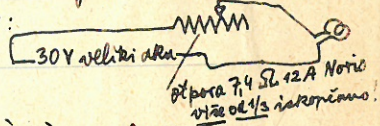 30 V veliki aku
otpora 7,4 Ω 12 A Noris
više od 1/3 iskopčano.